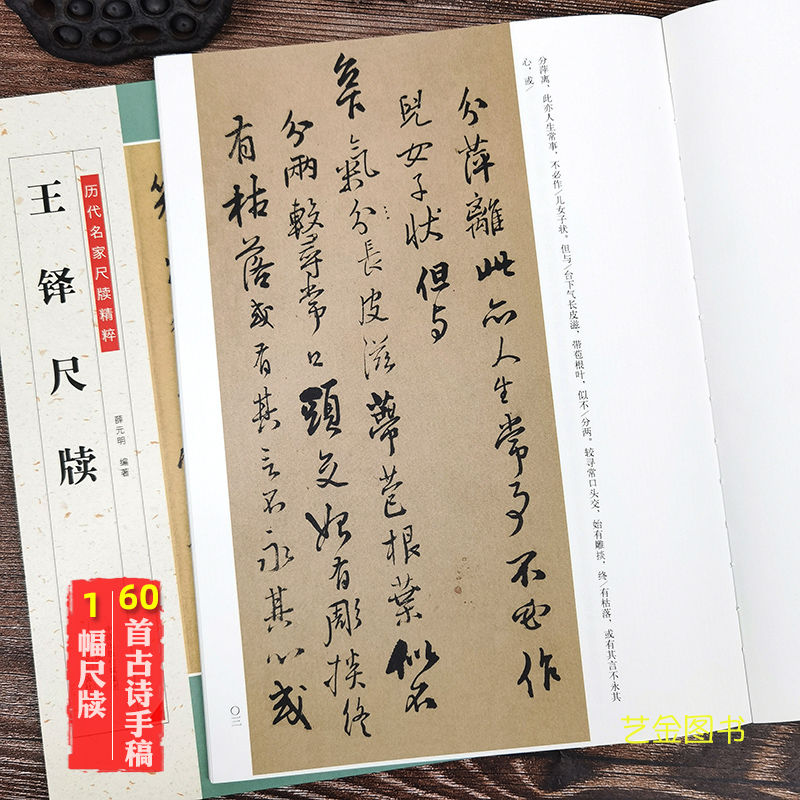 王铎尺牍
历代名家尺牍精粹
薛元明 编著
分萍离，此亦人生常事，不必作/儿女子状。但与/台下气长皮滋，带苞根叶，似不/分两。较寻常口头交，始有雕掞，终/有枯落，或有其言不永其
心，或/
分萍離此亦人生常事不必作
兒女子状但与
台下氣分長皮滋蔕苞根葉似不
分兩較尋常口頭交始有彫掞終
有枯落或有其言不永其心或
〇三二
60首古诗手稿
1幅尺牍
艺金图书